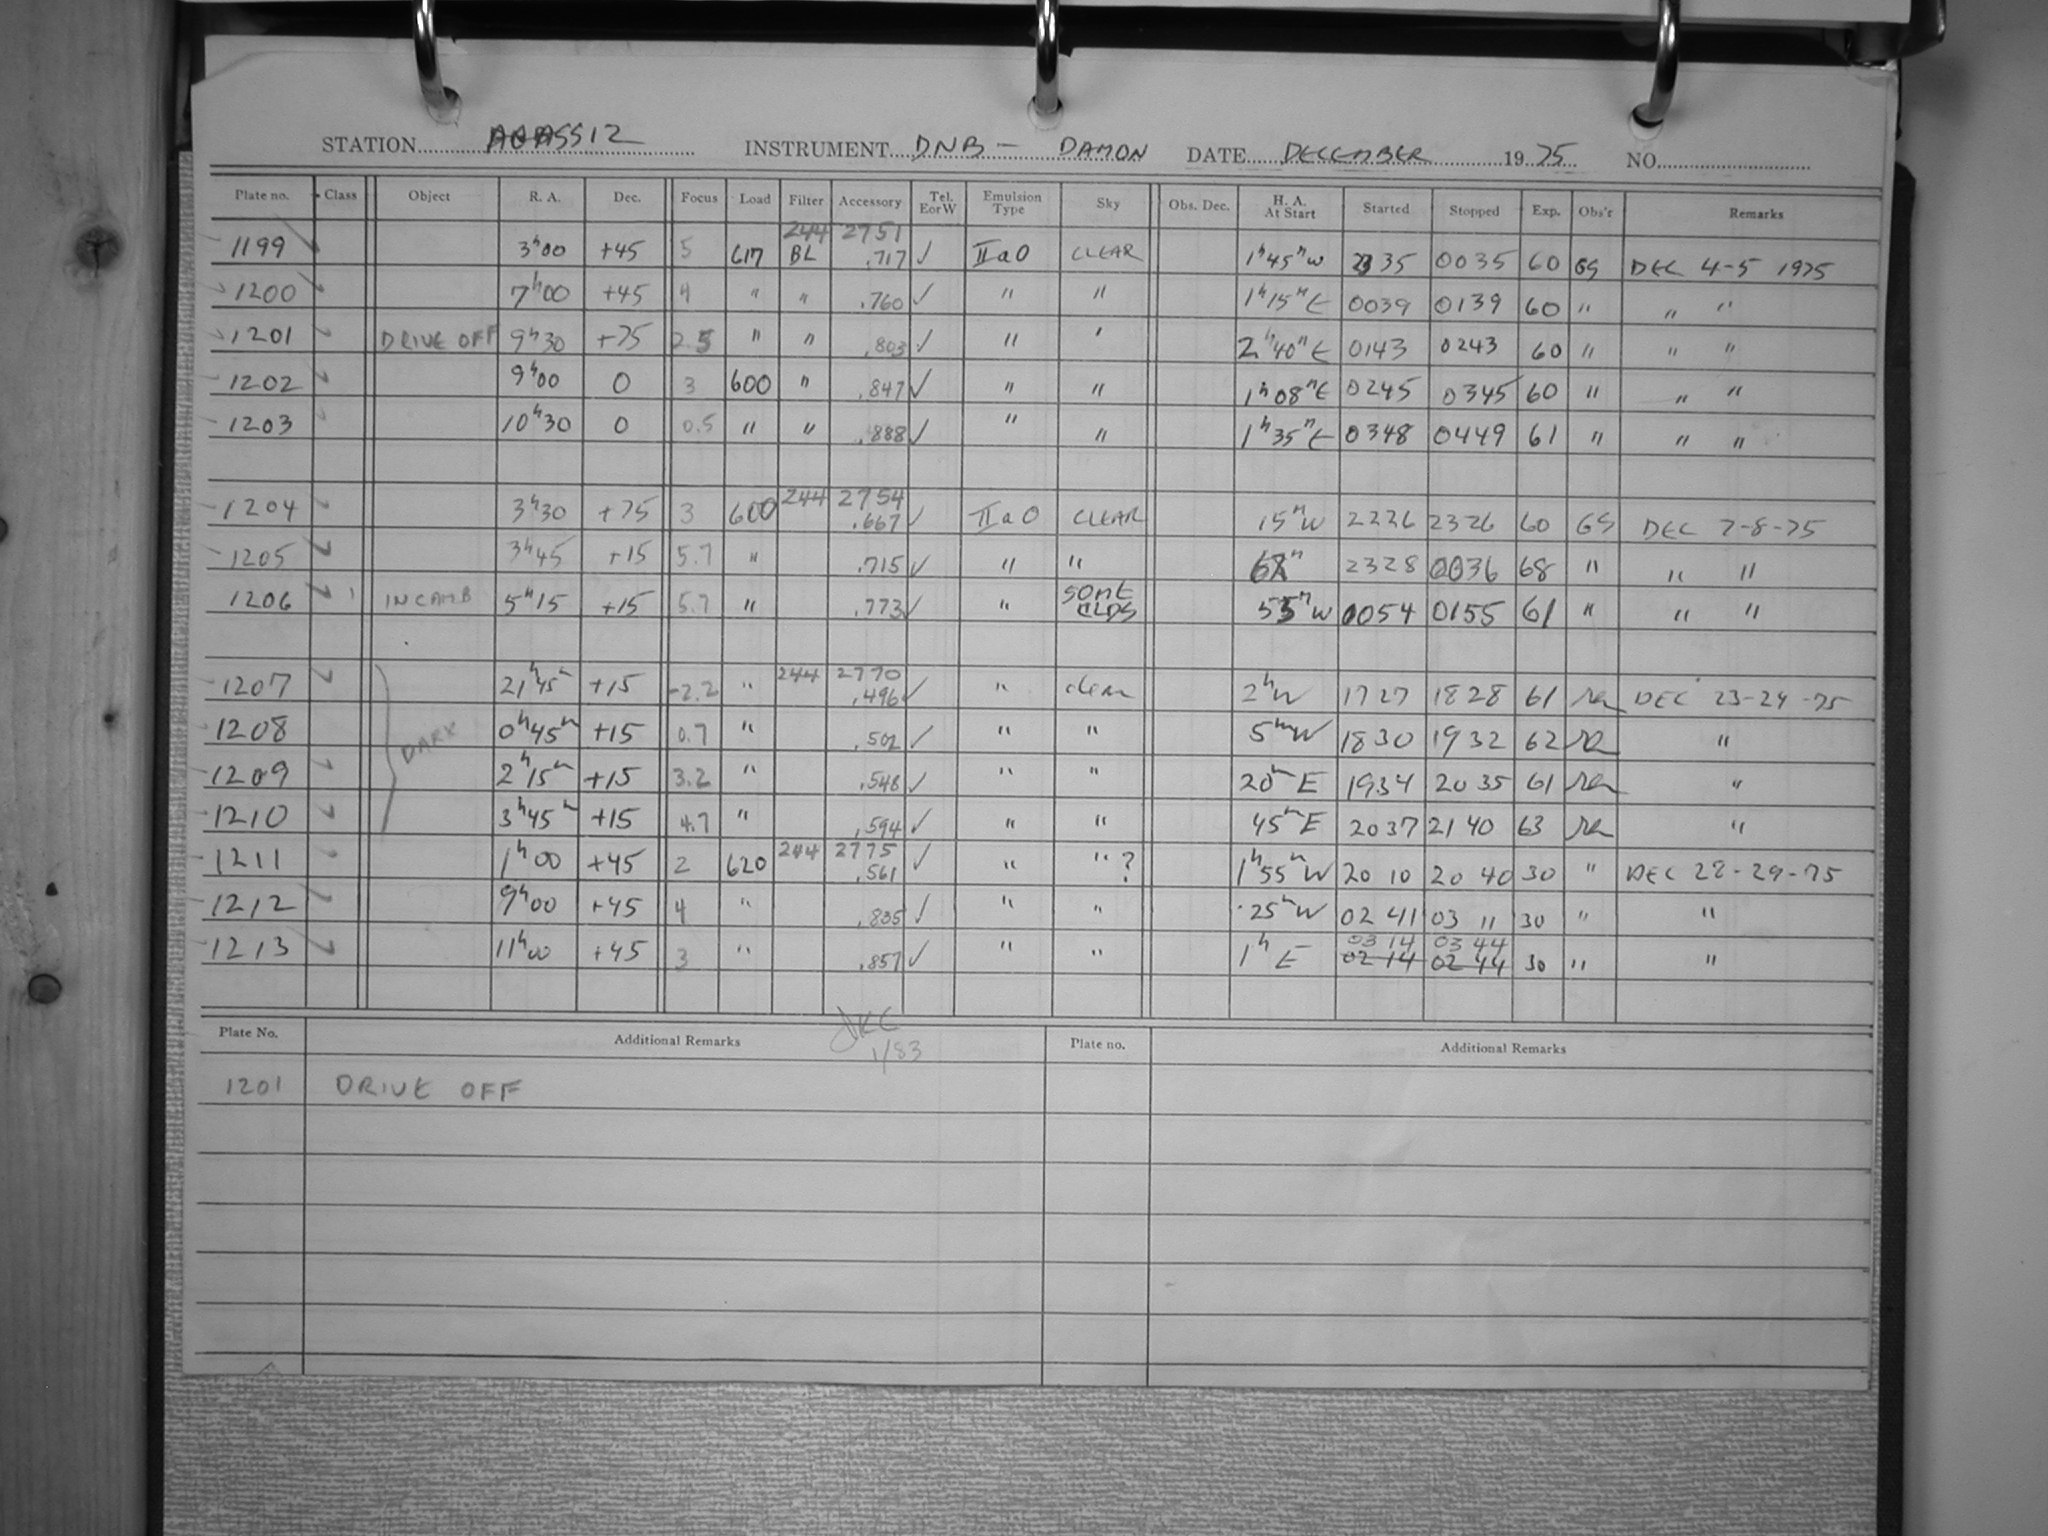 STATION AGASSIZ INSTRUMENT DNB - DAMON DATE DECEMBER 1975 NO.
Plate no. Class Object R. A. Dec. Focus Load Filter Accessory Tel. EorW Emulsion Type Sky Obs. Dec. H. A. At Start Started Stopped Exp. Obs'r Remarks
244 2751
1199 3h00 +45 5 617 BL .717 ✓ IIaO CLEAR 1h45m W 2335 0035 60 GS DEC 4-5 1975
1200 7h00 +45 4 " " .760 ✓ " " 1h15m E 0039 0139 60 " " "
1201 DRIVE OFF 9h30 +75 2.5 " " .803 ✓ " ' 2h40m E 0143 0243 60 " " "
1202 9h00 0 3 600 " .847 ✓ " " 1h08m E 0245 0345 60 " " "
1203 10h30 0 0.5 " " .888 ✓ " " 1h35m E 0348 0449 61 " " "
244 2754
1204 3h30 +75 3 600 .667 ✓ IIaO CLEAR 15m W 2226 2326 60 GS DEC 7-8-75
1205 3h45 +15 5.7 " .715 ✓ " " 2328 0036 68 " " "
1206 IN CAMB 5h15 +15 5.7 " .773 ✓ " SOME CLDS 55m W 0054 0155 61 " " "
244 2770
1207 21h45m +15 -2.2 " .496 ✓ " clear 2h W 1727 1828 61 DEC 23-24-75
1208 DARK 0h45m +15 0.7 " .502 ✓ " " 5m W 1830 1932 62 "
1209 2h15m +15 3.2 " .548 ✓ " " 20m E 1934 2035 61 "
1210 3h45m +15 4.7 " .594 ✓ " " 45m E 2037 2140 63 "
244 2775
1211 1h00 +45 2 620 .561 ✓ " " ? 1h55m W 20 10 20 40 30 " DEC 28-29-75
1212 9h00 +45 4 " .835 ✓ " " 25m W 02 41 03 11 30 " "
03 14 03 44
1213 11h00 +45 3 " .857 ✓ " " 1h E 02 14 02 44 30 " "
JKC
1/83
Plate No. Additional Remarks Plate no. Additional Remarks
1201 DRIVE OFF